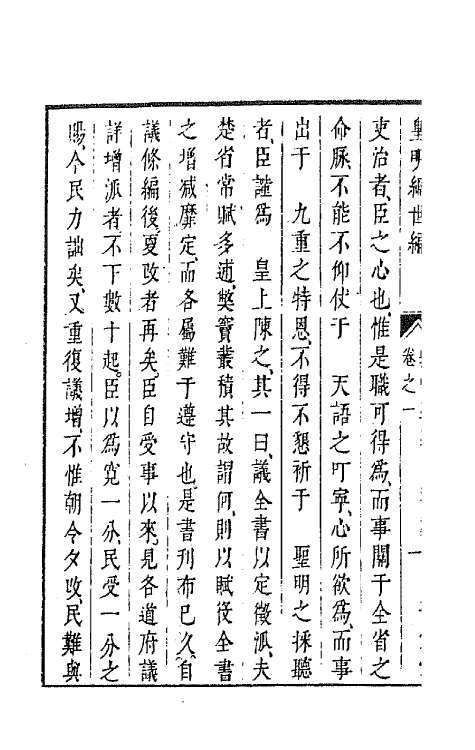 皇明經世編
卷之一
吏治者、臣之心也、惟是職可得爲、而事關于全省之
命脈、不能不仰仗于　天語之叮寧、心所欲爲、而事
出于　九重之特恩、不得不懇祈于　聖明之採聽
者、臣謹爲　皇上陳之、其一曰、議全書以定徵派、夫
楚省常賦多逋、獘竇叢積其故謂何、則以賦役全書
之增減靡定、而各屬難于遵守也、是書刊布已久、自
議條編後、更改者再矣、臣自受事以來、見各道府議
詳增派者、不下數十起、臣以爲寬一分、民受一分之
賜、今民力詘矣、又重復議增、不惟朝令夕改、民難與